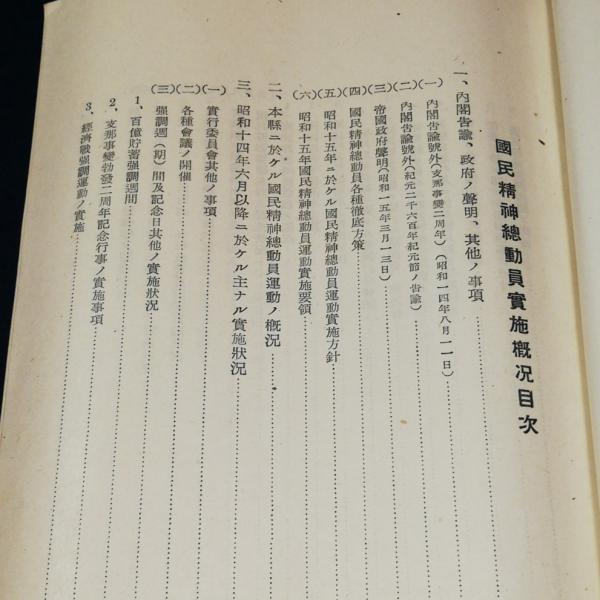 國民精神總動員實施概況目次
一、內閣告諭、政府ノ聲明、其他ノ事項
(一) 內閣告諭號外(支那事變二周年)(昭和一四年八月一一日)
(二) 內閣告諭號外(紀元二千六百年紀元節ノ告諭)
(三) 帝國政府聲明(昭和一五年三月一三日)
(四) 國民精神總動員各種徹底方策
(五) 昭和十五年ニ於ケル國民精神總動員運動實施方針
(六) 昭和十五年國民精神總動員運動實施要領
二、本縣ニ於ケル國民精神總動員運動ノ概況
三、昭和十四年六月以降ニ於ケル主ナル實施狀況
(一) 實行委員會其他ノ事項
(二) 各種會議ノ開催
(三) 强調週(期)間及記念日其他ノ實施狀況
1、百億貯蓄强調週間
2、支那事變勃發二周年記念行事ノ實施事項
3、經濟戰强調運動ノ實施